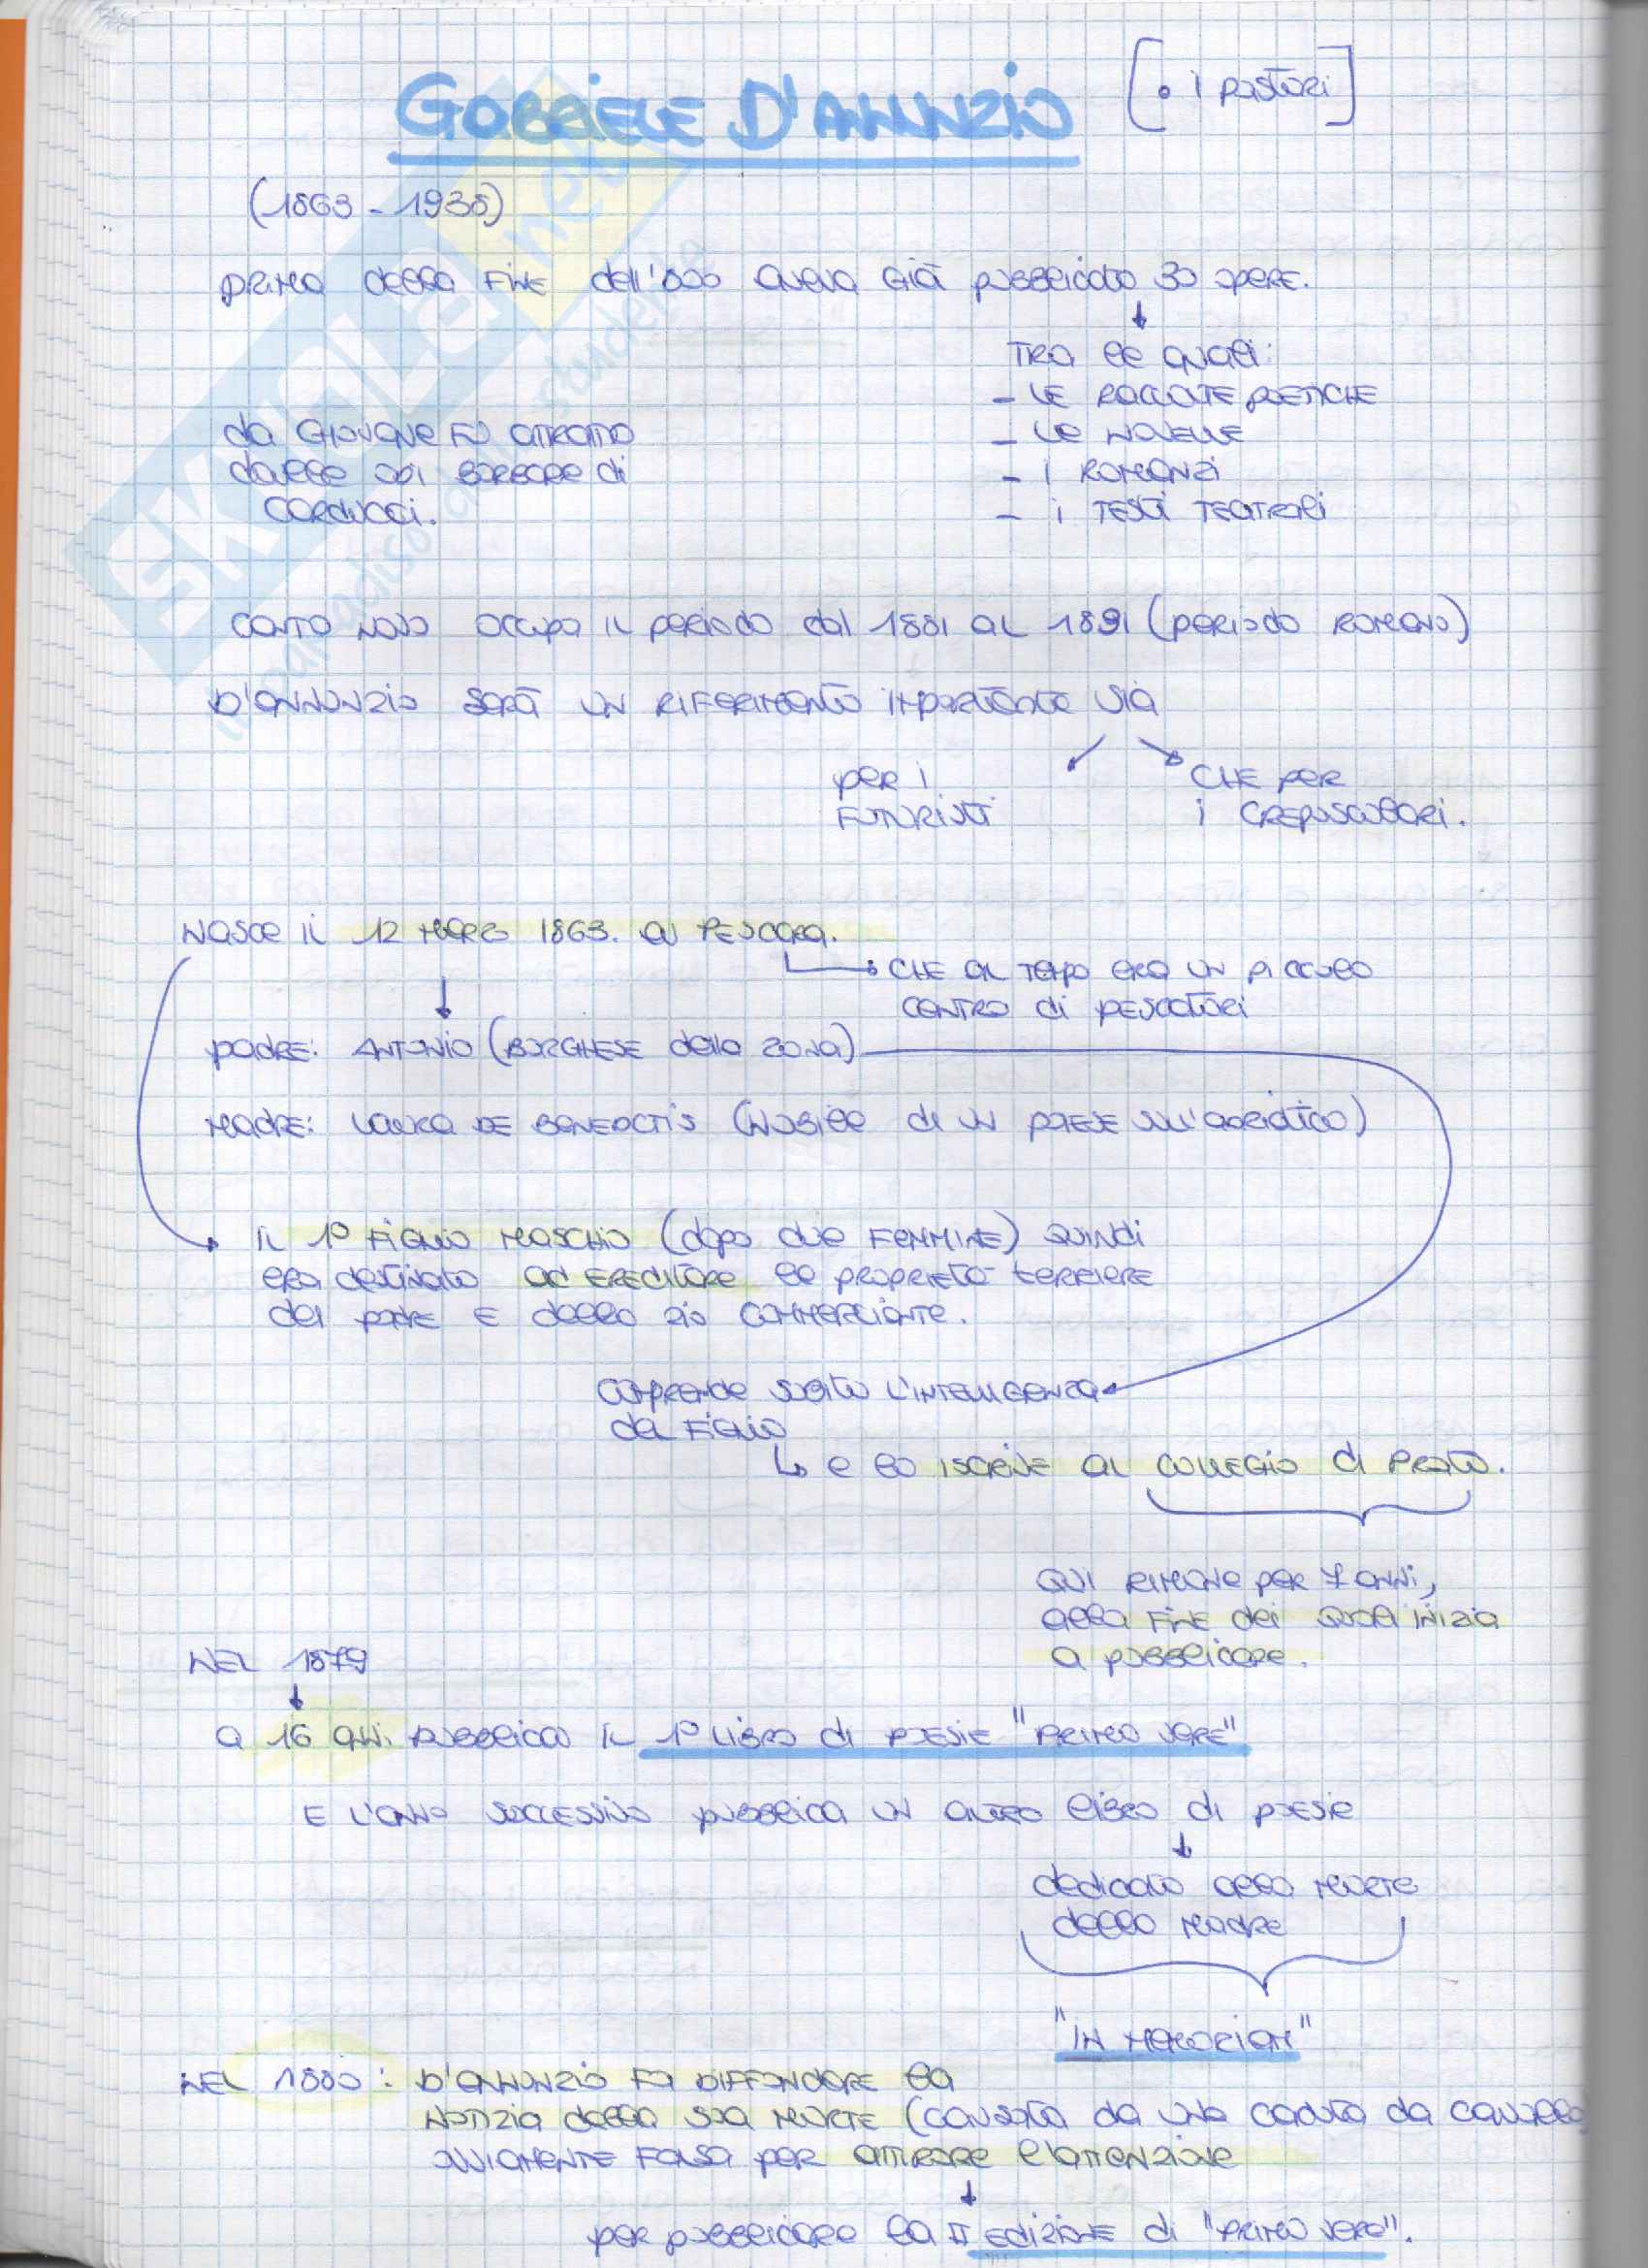 GABRIELE D'ANNUNZIO
[• i PASTORI]
(1863 - 1938)
PRIMA della FINE dell'800 aveva Già pubblicato 30 opere.
TRA le quali:
- LE RACCOLTE POETICHE
- LE NOVELLE
- I ROMANZI
- i TESTI TEATRALI
da GIOVANE FU ATTRATTO
dalle odi BARBARE di
CARDUCCI.
CANTO NOVO occupa IL periodo dal 1881 AL 1891 (periodo ROMANO)
D'ANNUNZIO SARÀ UN RIFERIMENTO IMPORTANTE SIA
per i
FUTURISTI
CHE PER
i CREPUSCOLARI.
NASCE il 12 MARZO 1863. a PESCARA.
CHE AL TEMPO ERA UN PICCOLO
CENTRO di PESCATORI
PADRE: ANTONIO (BORGHESE della ZONA)
MADRE: LUISA DE BENEDICTIS (NOBILE di UN PAESE SULL'ADRIATICO)
IL 1° FIGLIO MASCHIO (dopo due FEMMINE) QUINDI
ERA destinato AD EREDITARE le PROPRIETÀ TERRIERE
del PADRE E dello zio COMMERCIANTE.
COMPRENDE SUBITO L'INTELLIGENZA
del FIGLIO
e lo ISCRIVE AL COLLEGIO di PRATO.
QUI RIMANE per 7 ANNI,
alla FINE dei QUALI INIZIA
a pubblicare.
NEL 1879
a 16 anni pubblica IL 1° LIBRO di POESIE "PRIMO VERE"
E L'ANNO SUCCESSIVO pubblica UN ALTRO libro di POESIE
dedicato alla MORTE
della MADRE
"IN MEMORIAM"
NEL 1880: D'ANNUNZIO FA DIFFONDERE la
NOTIZIA della SUA MORTE (CAUSATA da UNA CADUTA da CAVALLO)
OVVIAMENTE FALSA per ATTIRARE l'ATTENZIONE
per pubblicare la II EDIZIONE di "PRIMO VERE".
SKUOLA.net
il paradiso dello studente